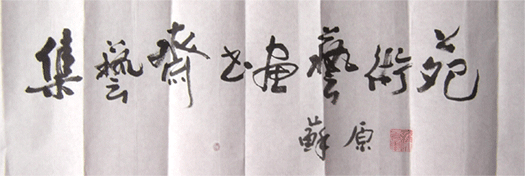 集藝齋书畫藝術苑
蘇原